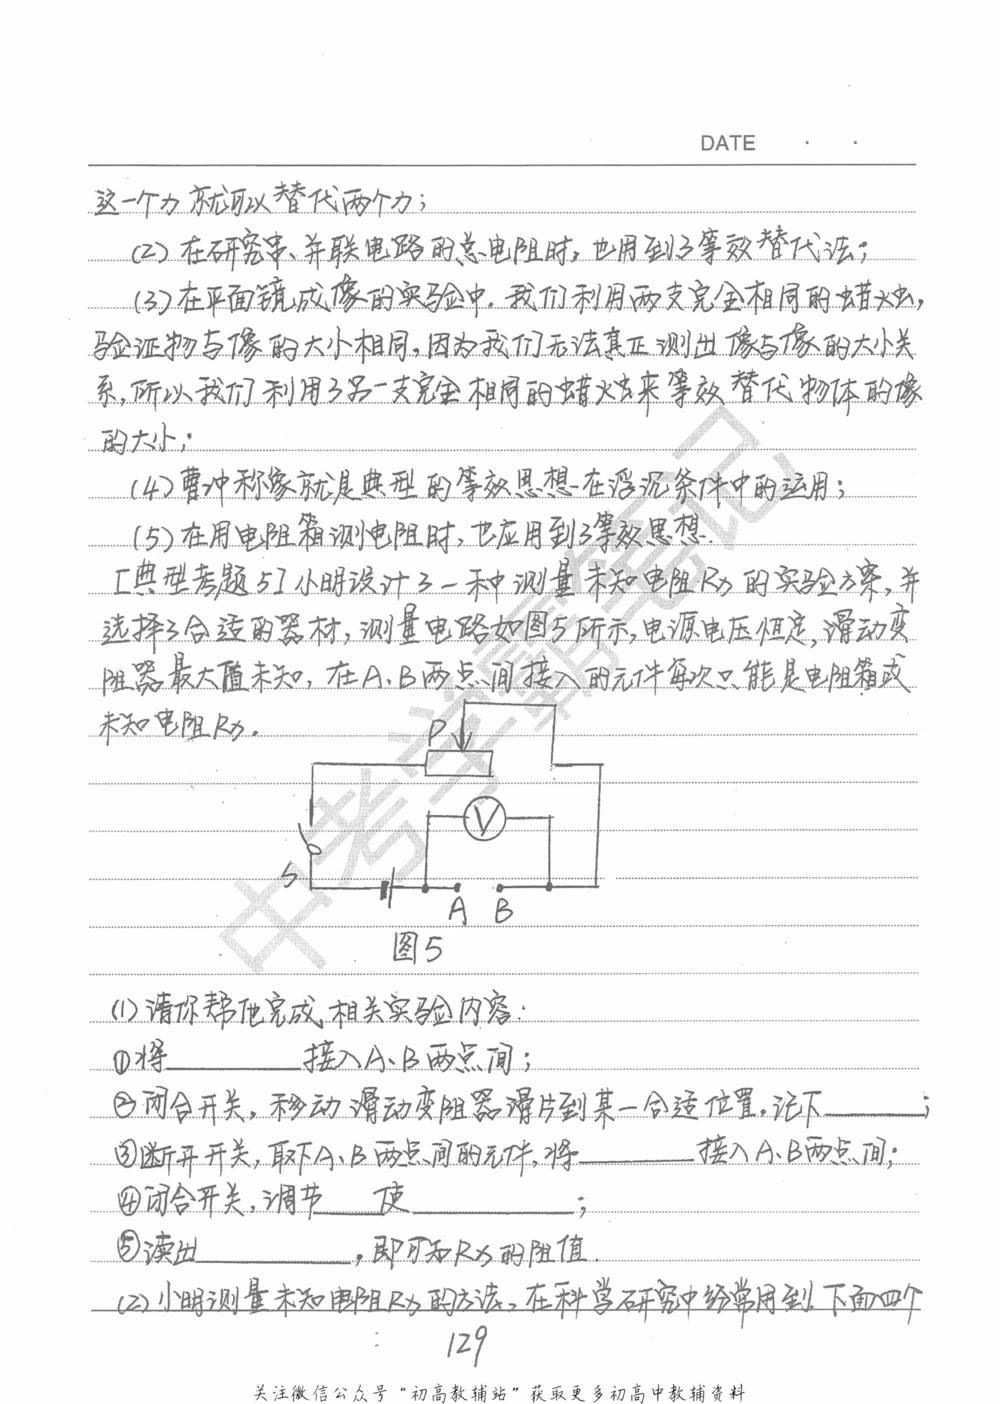 DATE · ·
这一个力就可以替代两个力;
(2)在研究串、并联电路的总电阻时,也用到了等效替代法;
(3)在平面镜成像的实验中,我们利用两支完全相同的蜡烛,
验证物与像的大小相同,因为我们无法真正测出像与像的大小关
系,所以我们利用了另一支完全相同的蜡烛来等效替代物体的像
的大小;
(4)曹冲称象就是典型的等效思想在浮沉条件中的运用;
(5)在用电阻箱测电阻时,也应用到了等效思想.
[典型考题5]小明设计了一种测量未知电阻Rx的实验方案,并
选择了合适的器材,测量电路如图5所示,电源电压恒定,滑动变
阻器最大值未知,在A、B两点间接入的元件每次只能是电阻箱或
未知电阻Rx.
P
V
S
A B
图5
(1)请你帮他完成相关实验内容:
①将________接入A、B两点间;
②闭合开关,移动滑动变阻器滑片到某一合适位置,记下________;
③断开开关,取下A、B两点间的元件,将________接入A、B两点间;
④闭合开关,调节____使________;
⑤读出________,即可知Rx的阻值.
(2)小明测量未知电阻Rx的方法,在科学研究中经常用到.下面四个
129
关注微信公众号“初高教辅站”获取更多初高中教辅资料
中考学霸笔记